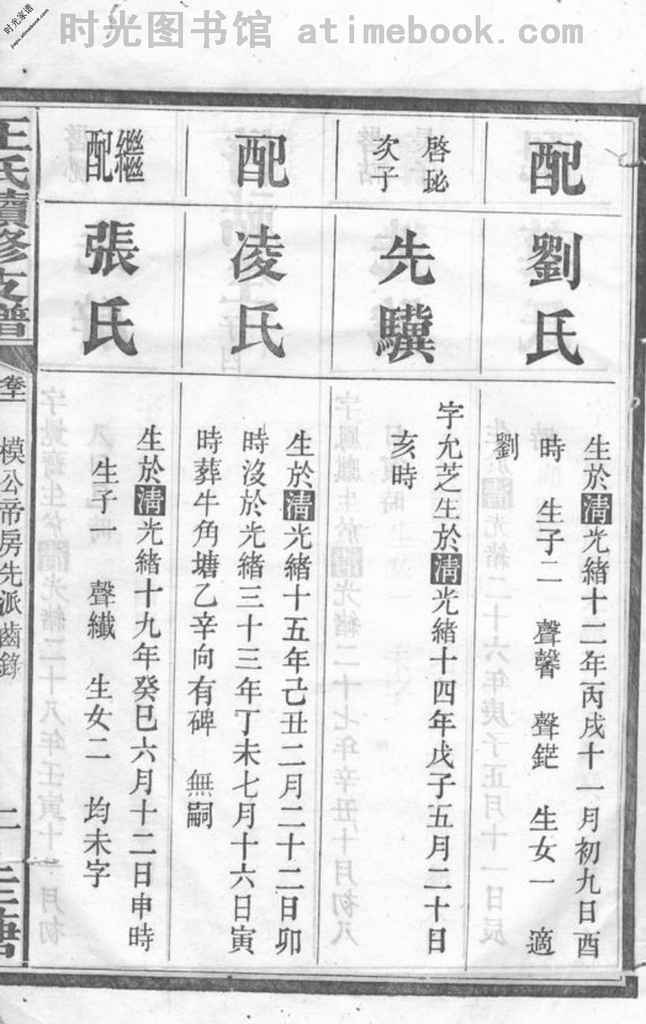 时光图书馆 atimebook.com
时光家谱
配
劉氏
生於清光緒十二年丙戌十一月初九日酉
時 生子二 聲馨 聲鋩 生女一 適
劉
啓珌
次子
先驥
字允芝生於清光緒十四年戊子五月二十日
亥時
配
凌氏
生於清光緒十五年己丑二月二十二日卯
時沒於光緒三十三年丁未七月十六日寅
時葬牛角塘乙辛向有碑 無嗣
繼配
張氏
生於清光緒十九年癸巳六月十二日申時
生子一 聲纖 生女二 均未字
王氏續修支譜
模公帝房先派齒錄
二